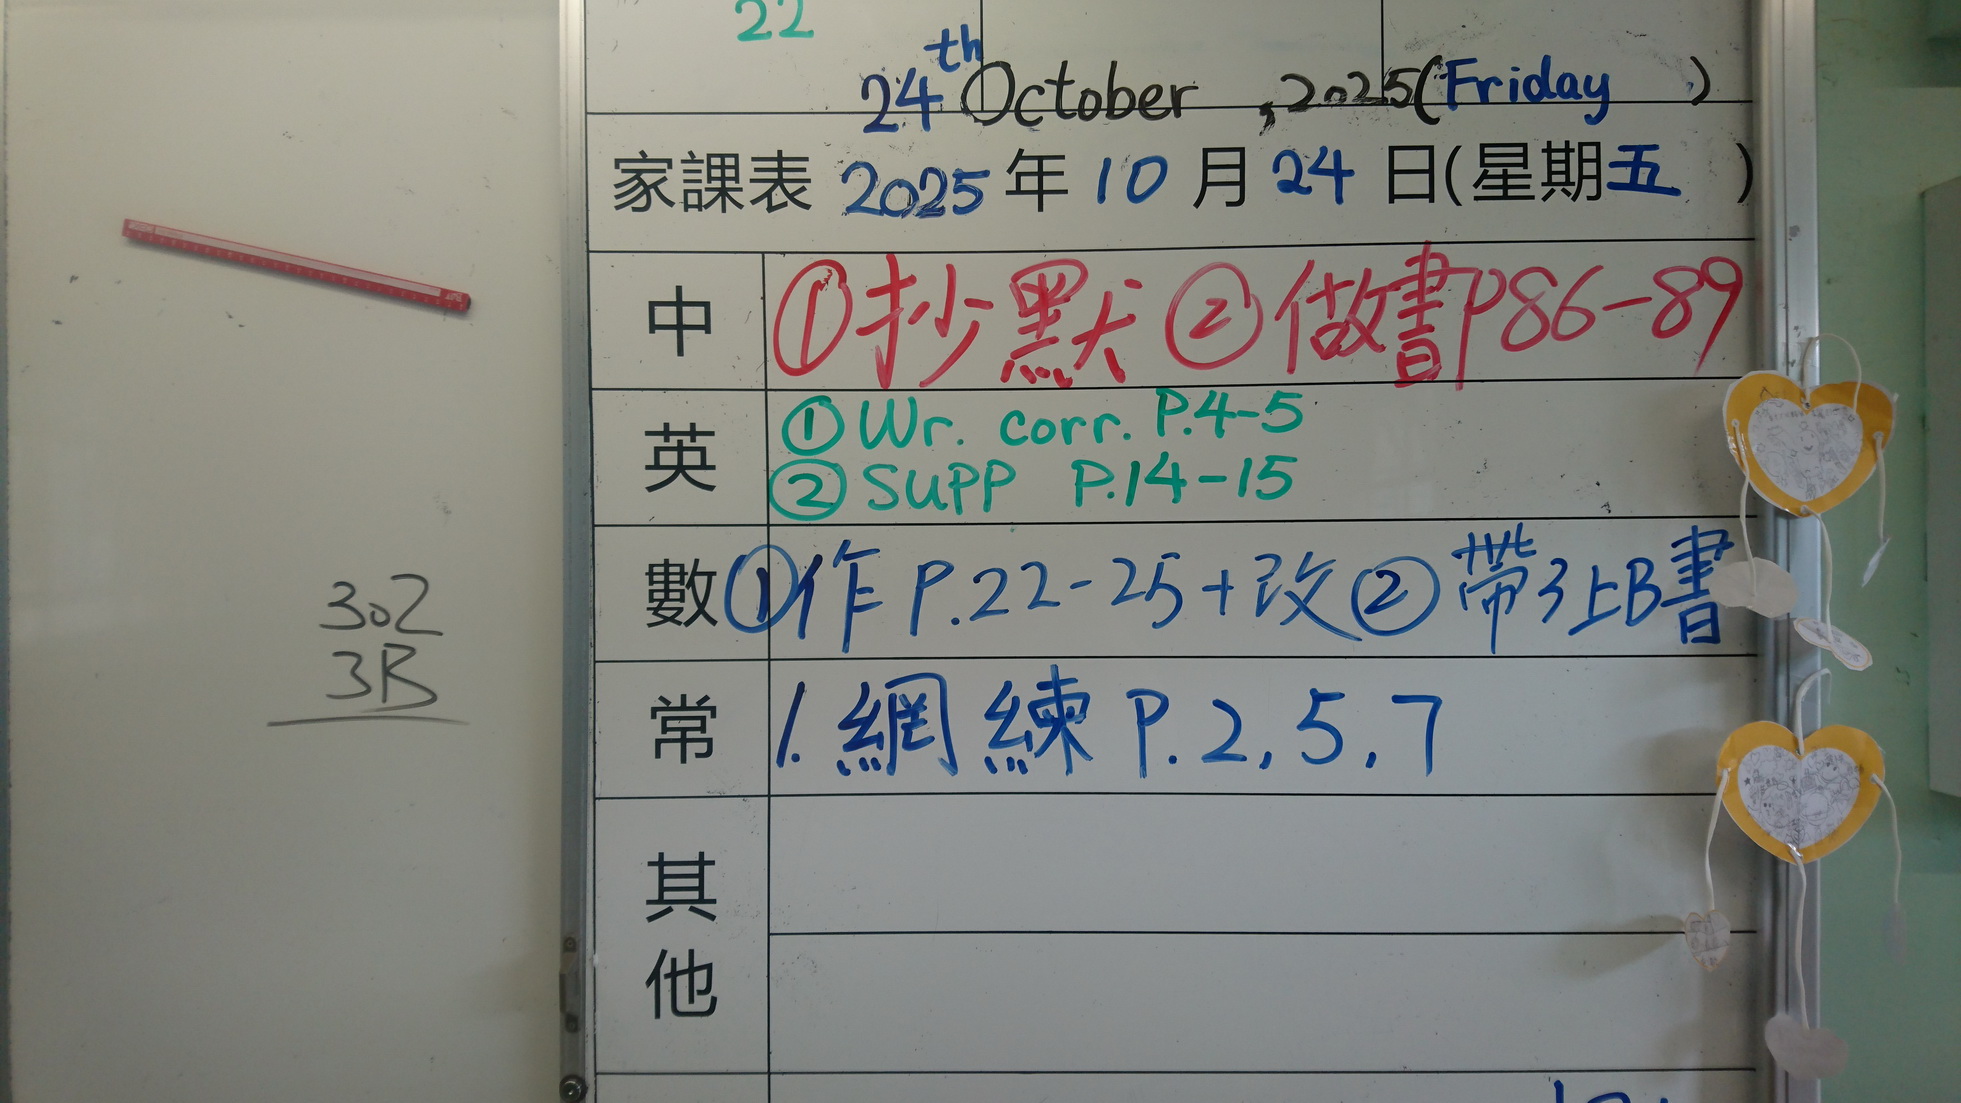 22
24th October , 2025 (Friday )
家課表 2025 年 10 月 24 日(星期五 )
中 ① 抄默 ② 做書 P86-89
英 ① Wr. corr. P.4-5
② SUPP P.14-15
數 ① 作 P.22-25+改 ② 帶3上B書
常 1. 網練 P.2, 5, 7
其他
302
3B